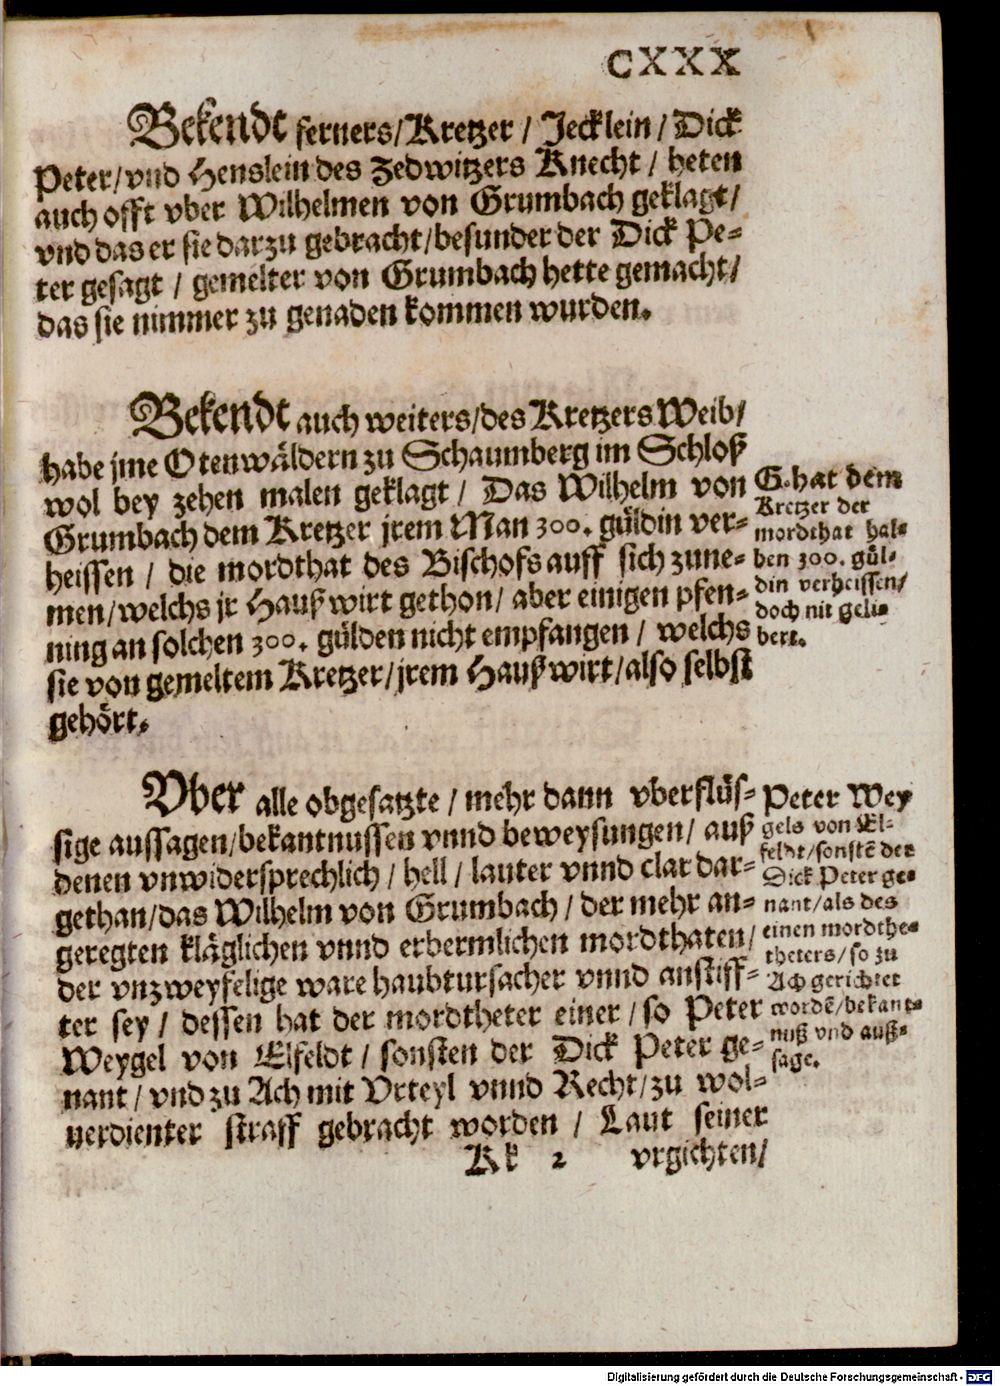 CXXX
Bekendt ferners/Kretzer / Jecklein / Dick
Peter/vnd Henslein des Zedwitzers Knecht / heten
auch offt vber Wilhelmen von Grumbach geklagt/
vnd das er sie darzu gebracht/besunder der Dick Pe-
ter gesagt / gemelter von Grumbach hette gemacht/
das sie nimmer zu genaden kommen wurden.
Bekendt auch weiters/des Kretzers Weib/
habe jme Otenwäldern zu Schaumberg im Schloß
wol bey zehen malen geklagt / Das Wilhelm von
Grumbach dem Kretzer jrem Man 300. güldin ver-
heissen / die mordthat des Bischofs auff sich zune-
men/welchs jr Haußwirt gethon/ aber einigen pfen-
ning an solchen 300. gülden nicht empfangen / welchs
sie von gemeltem Kretzer/jrem Haußwirt/also selbst
gehört.
G. hat dem
Kretzer der
mordthat hal-
ben 300. gül-
din verheissen/
doch nit geli-
bert.
Vber alle obgesatzte / mehr dann vberflüs-
sige aussagen/bekantnussen vnnd beweysungen/ auß
denen vnwidersprechlich / hell / lauter vnnd clar dar-
gethan/das Wilhelm von Grumbach / der mehr an-
geregten kläglichen vnnd erbermlichen mordthaten/
der vnzweyfelige ware haubtursacher vnnd anstiff-
ter sey / dessen hat der mordtheter einer / so Peter
Weygel von Elfeldt / sonsten der Dick Peter ge-
nant / vnd zu Ach mit Vrteyl vnnd Recht/zu wol-
uerdienter straff gebracht worden / Laut seiner
Peter Wey
gels von El-
feldt/sonstē der
Dick Peter ge-
nant/als des
einen mordthe-
theters/so zu
Ach gerichtet
wordē/bekant-
nuß vnd auß-
sage.
Kk 2 vrgichten/
Digitalisierung gefördert durch die Deutsche Forschungsgemeinschaft - DFG